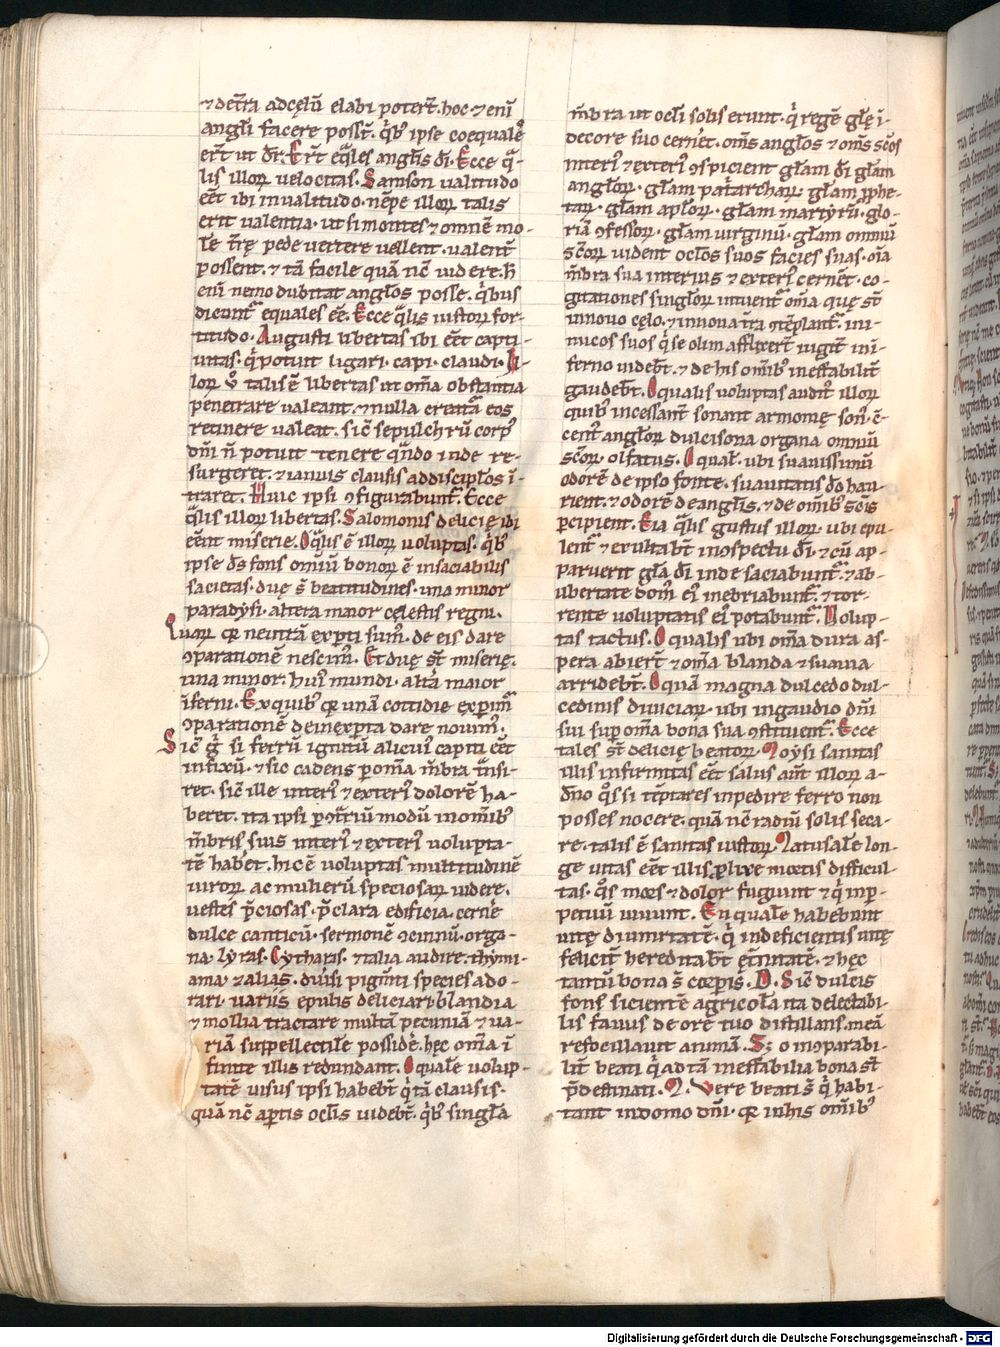 ⁊ det̄ra adcęlū elabi poterit̄. hoc ⁊ enī
angl̄i facere posst̄. qͥbꝰ ipse coequales
er̄t ut dr̄. Er̄t eq̄les angl̄is dī. Ecce q̄-
lis illoꝝ uelocitas. Samson ualitudo
eēt ibi inualitudo. nēpe illoꝝ talis
erit ualentia. ut si montes ⁊ omnē mo-
le t̄rę pede uertere uellent. ualent̄
possent. ⁊ tā facile quā nc̄ uidere. h̄
enī nemo dubitat angl̄os posse. qͥbus
dicunt᷑ equales eē. Ecce q̄lis iustoꝝ for-
titudo. Augusti libertas ibi eēt capti-
uitas. qͥ potuit ligari. capi. claudi. Il-
loꝝ ū talis ē libertas ut om̄a obstantia
penetrare ualeant. ⁊ nulla creat̄a eos
retinere ualeat. sic̄ sepulchrū corpꝰ
dn̄i n̄ potuit tenere qn̄do inde re-
surgeret. ⁊ ianuis clausis addiscipl̄os ī-
traret. Huic ipsi ꝯfigurabunt᷑. Ecce
q̄lis illoꝝ libertas. Salomonis delicię ibi
eēnt miserie. O q̄lis ē illoꝝ uoluptas. qͥbꝰ
ipse d̄s fons omiū bonoꝝ ē insaciabilis
sacietas. duę s̄ beatitudines. una minor
paradysi. altera maior cęlestis regni.
Quaꝝ qꝛ neutrā expti sumꝰ. de eis dare
ꝯparationē nescimꝰ. Et duę st̄ miserię.
una minor. huiꝰ mundi. alt̄a maior
īferni. Ex quibꝰ qꝛ unā cottidie experim᷑
ꝯparationē de inexpta dare nouimꝰ.
Sic̄ gͦ si ferrū ignitū alicuiꝰ capiti eēt
infixū. ⁊ sic cadens ꝑ om̄a m̄bra t̄nsi-
ret. sic̄ ille interiꝰ ⁊ exteriꝰ dolorē ha-
beret. ita ipsi ꝑ ꝯt̄riū modū in om̄ibꝰ
m̄bris suis interiꝰ ⁊ exteriꝰ uolupta-
tē habēt. hic ē uoluptas multitudinē
uiroꝝ ac mulierū speciosaꝝ uidere.
uestes p̄ciosas. p̄clara edificia. cernē
dulce canticū. sermonē ꝯcinnū. orga-
na. lyras. Cytharis. ⁊ talia audire. thymi-
ama ⁊ alias. diuersi pigmt̄i species ado-
rari. uariis epulis deliciari. blandia
⁊ mollia tractare. multā pecuniā ⁊ ua-
riā suppellectile possidē. hęc om̄a ī
finite illis redundant. O quale uolup-
tatē uisus ipsi habebt̄. qͥ tā clausis.
quā nc̄ aptis oclis uidebt̄. qͥbꝰ singl̄a
m̄bra ut ocl̄i solis erunt. qͥ regē gl̄ę ī-
decore suo cernēt. om̄s angl̄os ⁊ om̄s sc̄os
interiꝰ ⁊ exteriꝰ ꝯspicient gl̄am dī gl̄am
angl̄oꝝ. gl̄am pat̄archaꝝ. gl̄am ꝓphe-
taꝝ. gl̄am apl̄oꝝ. gl̄am martyrū. glo-
riā ꝯfessoꝝ. gl̄am uirginū. gl̄am omniū
sc̄oꝝ uident oclos suos facies suas. om̄a
m̄bra sua interius ⁊ exteriꝰ cernēt. co-
gitationes singloꝝ intuent᷑ om̄a quę st̄
in nouo cęlo. ⁊ in noua t̄ra ꝯtēplant᷑. ini-
micos suos qͥ se olim afflixert̄ iugit̄ in ī-
ferno uidebt̄. ⁊ de his om̄ibꝰ ineffabilit̄
gaudebt̄. O qualis uoluptas auditꝰ illoꝝ
quibꝰ incessant̄ sonant armonię. sonꝰ. ꝯ-
centꝰ angl̄oꝝ dulcisona organa omniū
sc̄oꝝ. olfatus. O qual̄. ubi suauissimū
odorē de ipso fonte. suauitatis do hau-
rient. ⁊ odorē de angl̄is. ⁊ de om̄ibꝰ sc̄is
ꝑcipient. Eia q̄lis gustus illoꝝ. ubi epu-
lent᷑ ⁊ exultabt̄ in ꝯspectu dī. ⁊ cū ap-
paruerit gl̄a dī inde saciabunt᷑. ⁊ ab-
ubertate domꝰ eiꝰ inebriabunt᷑. ⁊ tor-
rente uoluptatis eiꝰ potabunt᷑. Uolup-
tas tactus. O qualis ubi om̄a dura as-
pera abiert̄ ⁊ om̄a blanda ⁊ suauia
arridebt̄. O quā magna dulcedo dul-
cedinis diuiciaꝝ. ubi in gaudio dn̄i
sui sup om̄a bona sua ꝯstituent᷑. Ecce
tales st̄ delicię beatoꝝ. Moysi sanitas
illis infirmitas eēt salus aūt illoꝝ a-
dn̄o qͦs si tēptares inpedire ferro non
posses nocere. quā nc̄ radiū solis seca-
re. talis ē sanitas iustoꝝ. Matusale lon-
ge uitas eēt illis ꝓlixe mortis difficul-
tas. qͦs mors ⁊ dolor fugiunt ⁊ qͥ inp-
petuū uiuunt. En quale habebunt
uitę diuturnitatē. qͥ indeficientis uitę
felicit̄ hereditabt̄ et̄nitatē. ⁊ hęc
tantū bona s̄ corꝑis. D. Sic̄ dulcis
fons sicientē agricola ita delectabi-
lis fauus de ore tuo distillans. meā
refocillauit animā. S; o inꝯparabi-
lit̄ beati qͥ ad tā ineffabilia bona st̄
p̄destinati. M. Uere beati s̄ qͥ habi-
tant in domo dn̄i. qꝛ in his om̄ibꝰ
Digitalisierung gefördert durch die Deutsche Forschungsgemeinschaft - DFG